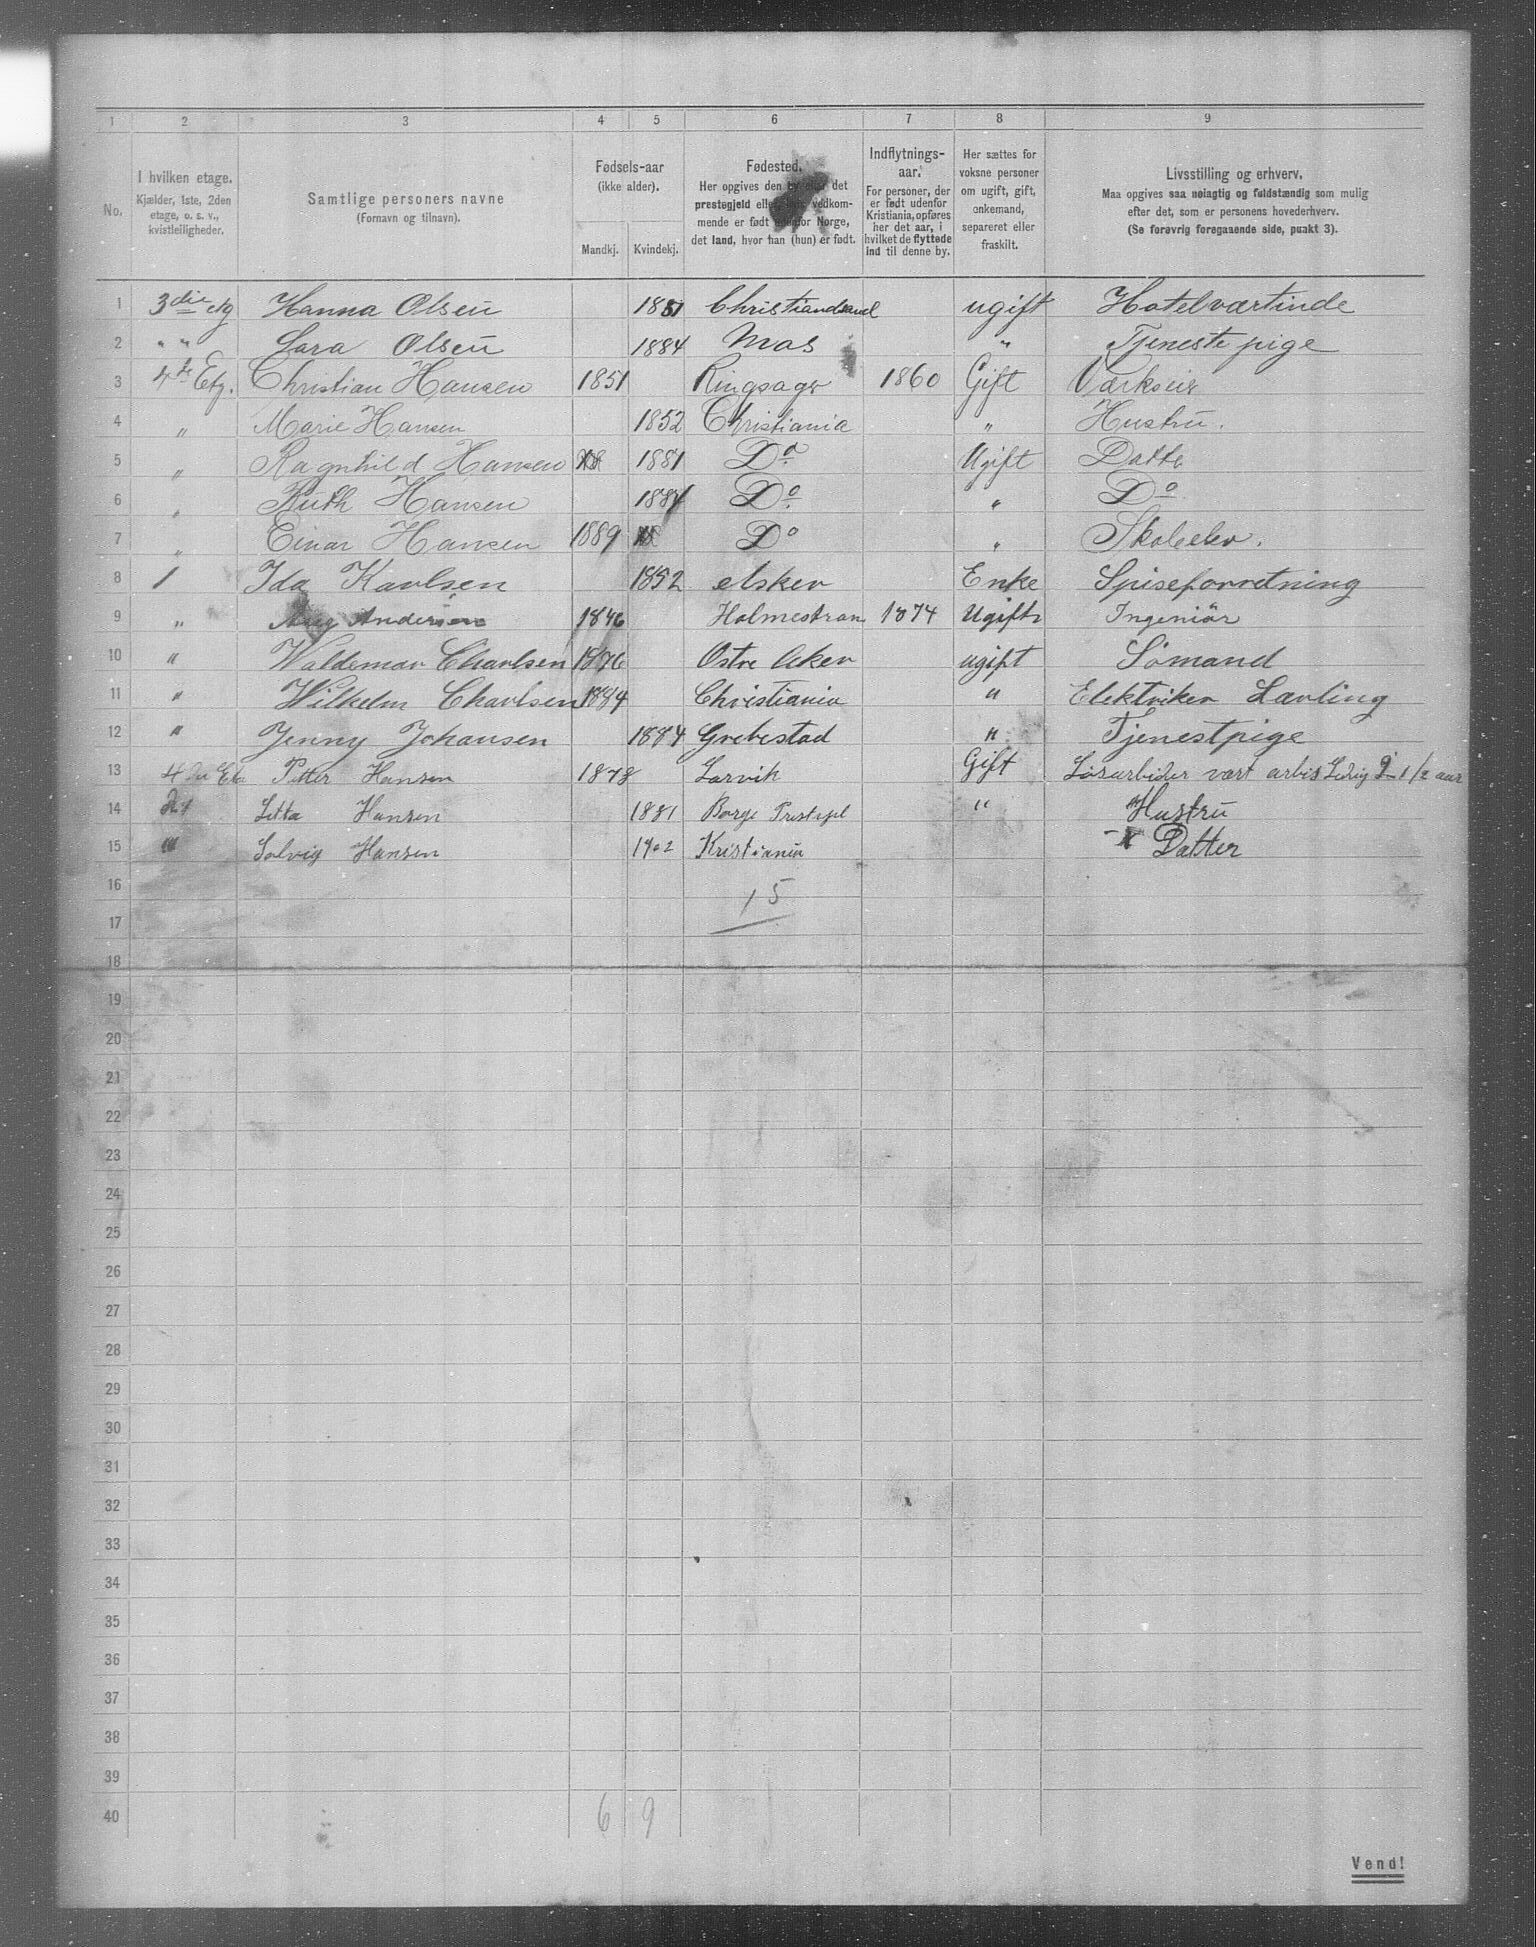 1 2 3 4 5 6 7 8 9
No.
I hvilken etage.
Kjælder, 1ste, 2den
etage, o. s. v.,
kvistleiligheder.
Samtlige personers navne
(Fornavn og tilnavn).
Fødsels-aar
(ikke alder).
Mandkj. Kvindekj.
Fødested.
Her opgives den by eller det
prestegjeld eller, hvis vedkom-
mende er født udenfor Norge,
det land, hvor han (hun) er født.
Indflytnings-
aar.
For personer, der
er født udenfor
Kristiania, opføres
her det aar, i
hvilket de flyttede
ind til denne by.
Her sættes for
voksne personer
om ugift, gift,
enkemand,
separeret eller
fraskilt.
Livsstilling og erhverv.
Maa opgives saa nøiagtig og fuldstændig som mulig
efter det, som er personens hovederhverv.
(Se forøvrig foregaaende side, punkt 3).
1 3die etg Hanna Olsen 1881 Christiandsand ugift Hotelværtinde
2 " " Sara Olsen 1884 Mos " Tjeneste pige
3 4de Etg. Christian Hansen 1851 Ringsager 1860 Gift Værkseir
4 " Marie Hansen 1852 Christiania " Hustru.
5 " Ragnhild Hansen 1881 Do Ugift Datte
6 " Ruth Hansen 1884 Do " Do
7 " Einar Hansen 1889 Do " Skoleelev.
8 1 Ida Karlsen 1852 elsker Enke Spiseforretning
9 " Andersen 1846 Holmestran 1874 Ugift Ingeniör
10 " Waldemar Charlsen 1876 Ostre Aker ugift Sömand
11 " Wilhelm Charlsen 1884 Christiania " Elektriker Lærling
12 " Jenny Johansen 1884 Grebestad " Tjenestpige
13 4 Petter Hansen 1878 Larvik Gift Lösarbider vært arbis Ledig i 1/2 aar
14 Letta Hansen 1881 Borge Prestejel " Hustru
15 " Solvig Hansen 1902 Kristiania Datter
16
15
17
18
19
20
21
22
23
24
25
26
27
28
29
30
31
32
33
34
35
36
37
38
39
40 6 9
Vend!